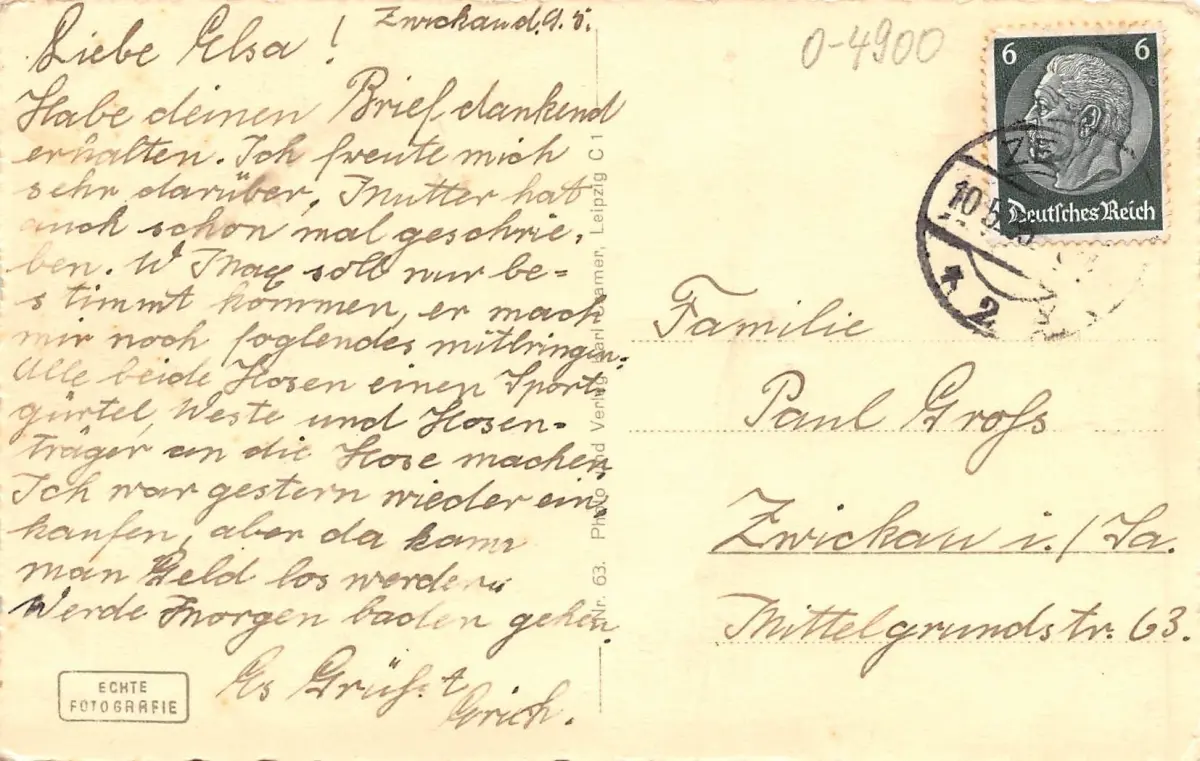 Zwickau d. 9. 5.
Liebe Elsa!
Habe deinen Brief dankend
erhalten. Ich freute mich
sehr darüber, Mutter hat
auch schon mal geschrie-
ben. soll nur be=
stimmt kommen, er mach
mir noch foglendes mitbringen:
Alle beide Hosen einen Sport-
gürtel, Weste und Hosen-
träger an die Hose machen,
Ich war gestern wieder ein-
kaufen, aber da kann
man Geld los werden.
Werde Morgen baden gehen.
Es Grüßt
Erich.
ECHTE
FOTOGRAFIE
Nr. 63. Photo und Verlag Karl Leipzig C 1
0-4900
6 6
Deutsches Reich
10.5.
* 2
Familie
Paul Groſs
Zwickau i./Sa.
Mittelgrundstr. 63.